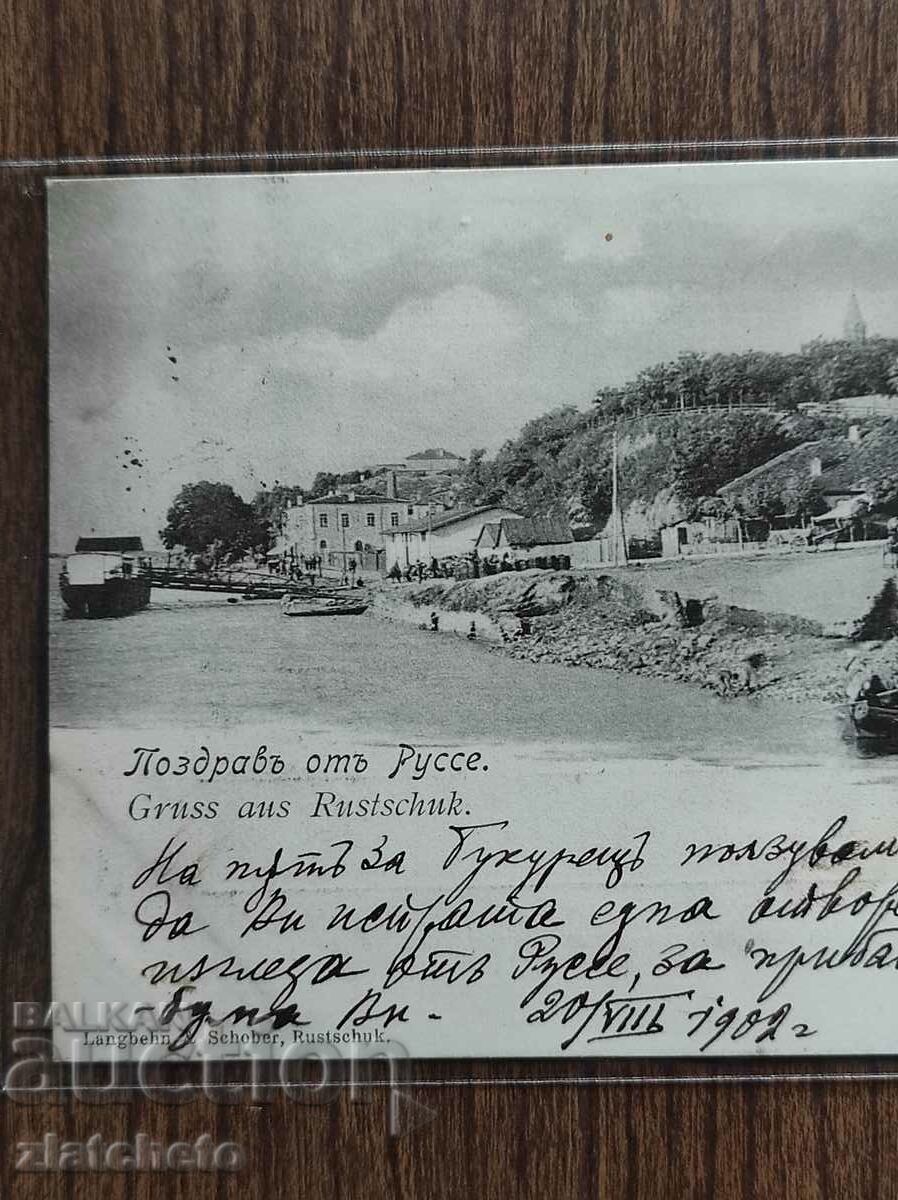 Поздравъ отъ Руссе.
Gruss aus Rustschuk.
На пѫтъ за Букурещъ ползувам
да Ви испратя една отворе
изгледа отъ Руссе, за приба
Ви - 20/VIII 1902 г
Langbehn & Schober, Rustschuk.
BALKAN
auction
zlatcheto